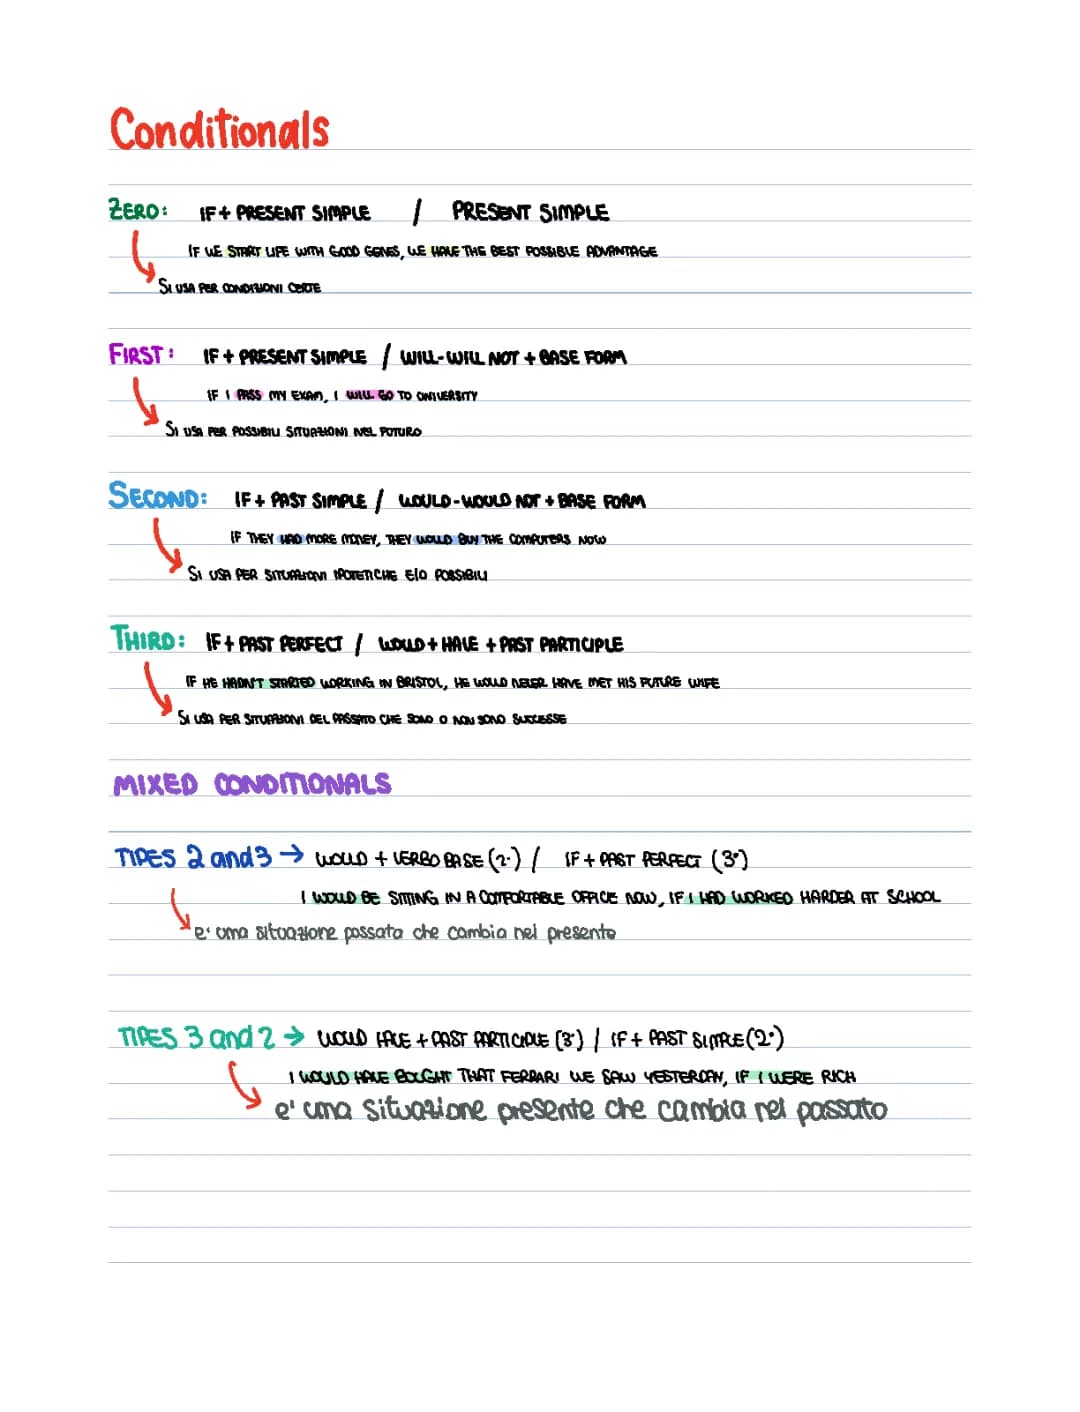 Conditionals
ZERO: IF + PRESENT SIMPLE / PRESENT SIMPLE
IF WE START LIFE WITH GOOD GENES, WE HAVE THE BEST POSSIBLE ADVANTAGE
SI USA PER CONDIZIONI CERTE
FIRST: IF + PRESENT SIMPLE / WILL-WILL NOT + BASE FORM
IF I PASS MY EXAM, I WILL GO TO UNIVERSITY
SI USA PER POSSIBILI SITUAZIONI NEL FUTURO
SECOND: IF + PAST SIMPLE / WOULD-WOULD NOT + BASE FORM
IF THEY HAD MORE MONEY, THEY WOULD BUY THE COMPUTERS NOW
SI USA PER SITUAZIONI IPOTETICHE E/O POSSIBILI
THIRD: IF + PAST PERFECT / WOULD + HAVE + PAST PARTICIPLE
IF HE HADN'T STARTED WORKING IN BRISTOL, HE WOULD NEVER HAVE MET HIS FUTURE WIFE
SI USA PER SITUAZIONI DEL PASSATO CHE SONO O NON SONO SUCCESSE
MIXED CONDITIONALS
TIPES 2 and 3 → WOULD + VERBO BASE (2°) / IF + PAST PERFECT (3°)
I WOULD BE SITTING IN A COMFORTABLE OFFICE NOW, IF I HAD WORKED HARDER AT SCHOOL
e' una situazione passata che cambia nel presente
TIPES 3 and 2 → WOULD HAVE + PAST PARTICIPLE (3°) / IF + PAST SIMPLE (2°)
I WOULD HAVE BOUGHT THAT FERRARI WE SAW YESTERDAY, IF I WERE RICH
e' una situazione presente che cambia nel passato